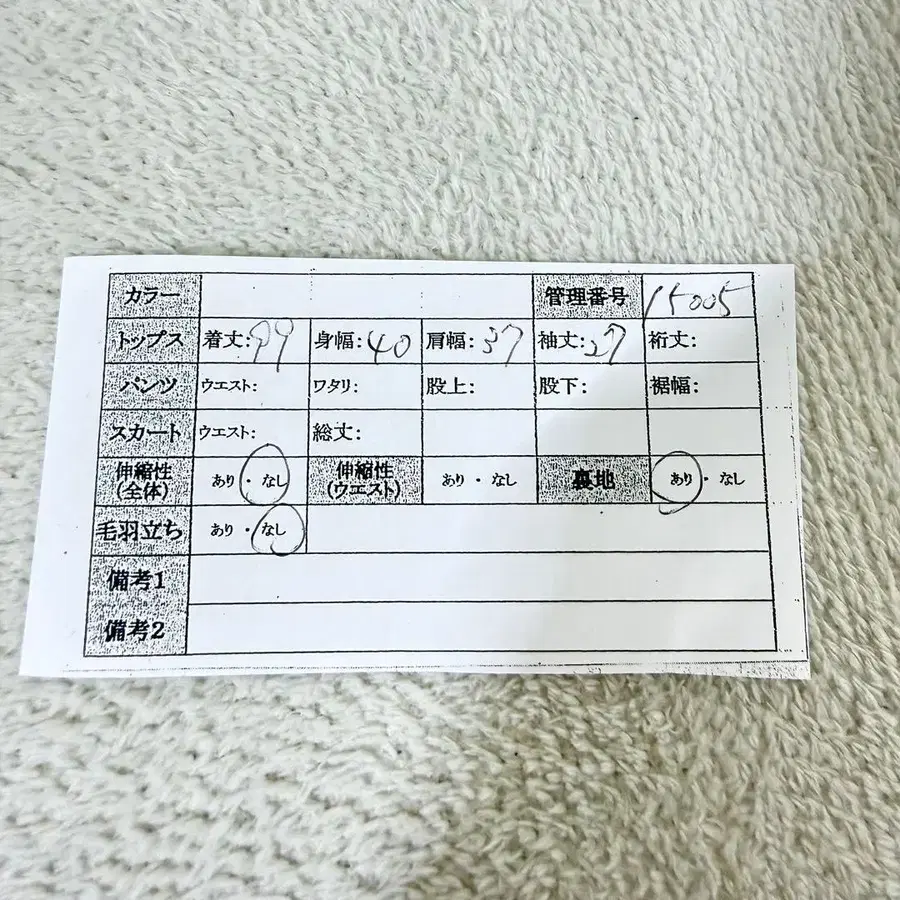 カラー 管理番号 15005
トップス 着丈:99 身幅:40 肩幅:37 袖丈:27 裄丈:
パンツ ウエスト: ワタリ: 股上: 股下: 裾幅:
スカート ウエスト: 総丈:
伸縮性(全体) あり・なし 伸縮性(ウエスト) あり・なし 裏地 あり・なし
毛羽立ち あり・なし
備考1
備考2